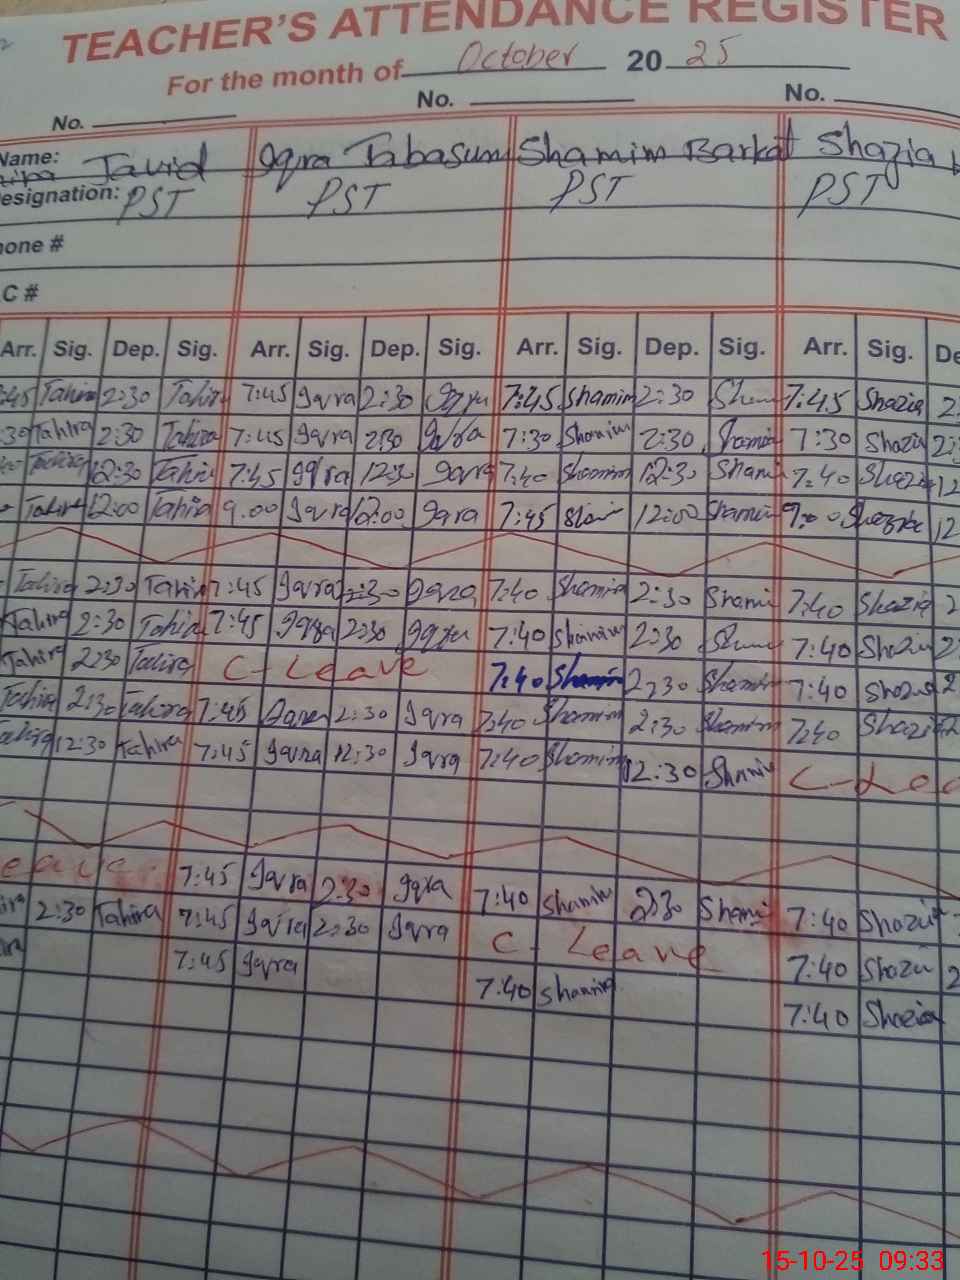 TEACHER'S ATTENDANCE REGISTER
For the month of October 20 25
No. No. No.
Name: Javid Iqra Tabasum Shamim Barkat Shazia
esignation: PST PST PST PST
one #
C #
Arr. Sig. Dep. Sig. Arr. Sig. Dep. Sig. Arr. Sig. Dep. Sig. Arr. Sig. De
:45 Tahira 2:30 Tahira 7:45 Iqra 2:30 Iqra 7:45 Shamim 2:30 7:45 Shazia 2:
:30 Tahira 2:30 Tahira 7:45 Iqra 2:30 Iqra 7:30 Shamim 2:30 Shamim 7:30 Shazia 2:
Tahira 12:30 Tahira 7:45 Iqra 12:30 Iqra 7:40 Shamim 12:30 Shami 7:40 Shazia 12
Tahira 12:00 Tahira 9.00 Iqra 12:00 Iqra 7:45 12:00 Shamim Shazia 12
Tahira 2:30 Tahira 7:45 Iqra 2:30 Iqra 7:40 Shamim 2:30 Shami 7:40 Shazia 2
Tahira 2:30 Tahira 7:45 Iqra 2:30 Iqra 7:40 Shamim 2:30 7:40 Shazia 2
Tahira 2:30 Tahira C-Leave 7:40 Shamim 2:30 Shamim 7:40 Shazia 2
Tahira 2:30 Tahira 7:45 Iqra 2:30 Iqra 7:40 Shamim 2:30 Shamim 7:40 Shazia
ahira 12:30 Tahira 7:45 Iqra 12:30 Iqra 7:40 Shamim 12:30 Shamim C-Lea
eave 7:45 Iqra 2:30 Iqra 7:40 Shamim 2:30 Shami 7:40 Shazia
ira 2:30 Tahira 7:45 Iqra 2:30 Iqra C-Leave 7:40 Shazia 2
ira 7:45 Iqra 7:40 Shamim 7:40 Shazia
15-10-25 09:33